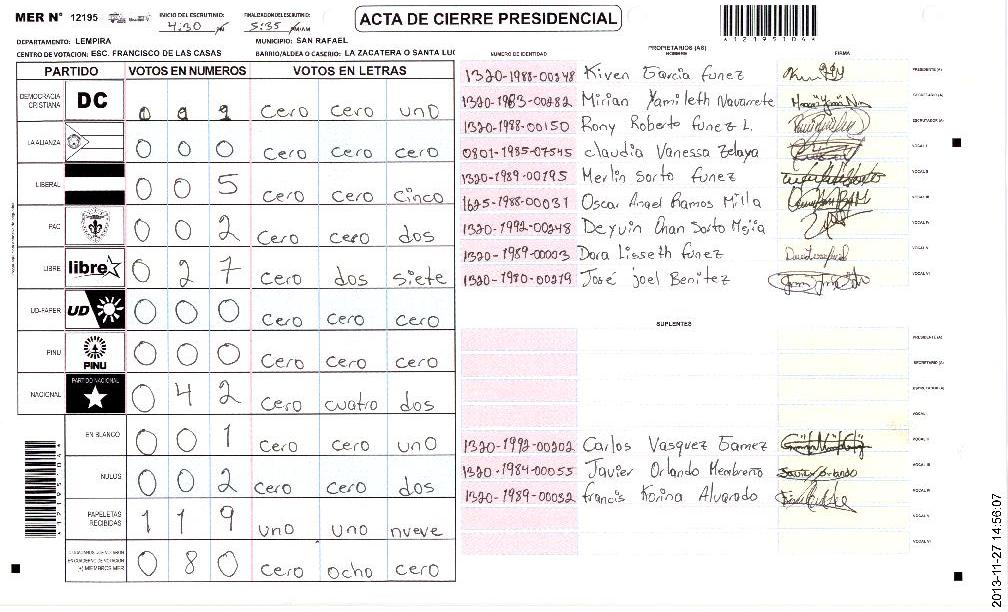 MER N° 12195
INICIO DEL ESCRUTINIO: 4:30 PM
FINALIZACION DEL ESCRUTINIO: 5:35 PM/AM
ACTA DE CIERRE PRESIDENCIAL
*12195104*
DEPARTAMENTO: LEMPIRA
MUNICIPIO: SAN RAFAEL
CENTRO DE VOTACION: ESC. FRANCISCO DE LAS CASAS
BARRIO/ALDEA O CASERIO: LA ZACATERA O SANTA LUC
PARTIDO VOTOS EN NUMEROS VOTOS EN LETRAS
DEMOCRACIA CRISTIANA DC 0 cero cero uno
LA ALIANZA 0 0 0 cero cero cero
LIBERAL 0 0 5 cero cero cinco
PAC 0 0 2 cero cero dos
LIBRE libre 0 2 7 cero dos siete
UD-FAPER UD 0 0 0 cero cero cero
PINU PINU 0 0 0 cero cero cero
NACIONAL PARTIDO NACIONAL 0 4 2 cero cuatro dos
EN BLANCO 0 0 1 cero cero uno
NULOS 0 0 2 cero cero dos
PAPELETAS RECIBIDAS 1 1 9 uno uno nueve
CIUDADANOS QUE VOTARON EN CUADERNO DE VOTACION (+) MIEMBROS MER 0 8 0 cero ocho cero
PROPIETARIOS (AS)
NUMERO DE IDENTIDAD NOMBRE FIRMA
1320-1988-00348 Kiven Garcia funez PRESIDENTE (A)
1320-1983-00282 Mirian Yamileth Navarrete SECRETARIO (A)
1320-1988-00150 Rony Roberto funez L. ESCRUTADOR (A)
0801-1985-07545 claudia Vanessa Zelaya VOCAL I
1320-1989-00195 Merlin Sorto funez VOCAL II
1625-1988-00031 Oscar Angel Ramos Milla VOCAL III
1320-1992-00248 Deyvin Chan Sorto Mejia VOCAL IV
1320-1989-00003 Dora Lisseth funez VOCAL V
1320-1980-00219 José joel Benitez VOCAL VI
SUPLENTES
PRESIDENTE (A)
SECRETARIO (A)
ESCRUTADOR (A)
VOCAL I
1320-1992-00202 Carlos Vasquez Gamez VOCAL II
1320-1984-00055 Javier Orlando Membreño Javier Orlando VOCAL III
1320-1989-00032 francis Korina Alvarado VOCAL IV
VOCAL V
VOCAL VI
*12195104*
2013-11-27 14:56:07